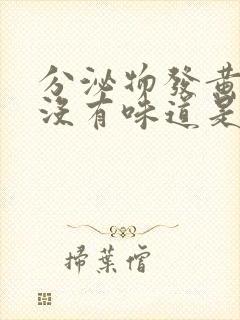 分泌物發黃
沒有味道是
掃葉僧